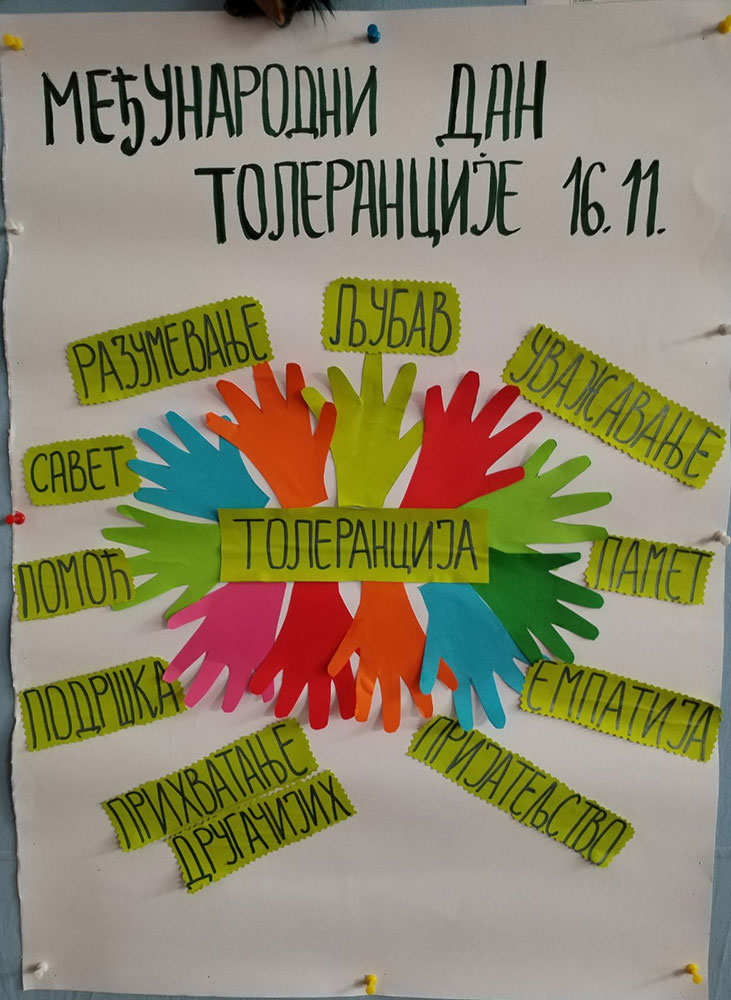 МЕЂУНАРОДНИ ДАН
ТОЛЕРАНЦИЈЕ 16.11.
ЉУБАВ
РАЗУМЕВАЊЕ
УВАЖАВАЊЕ
САВЕТ
ТОЛЕРАНЦИЈА
ПОМОЋ
ПАМЕТ
ПОДРШКА
ЕМПАТИЈА
ПРИХВАТАЊЕ
ДРУГАЧИЈИХ
ПРИЈАТЕЉСТВО